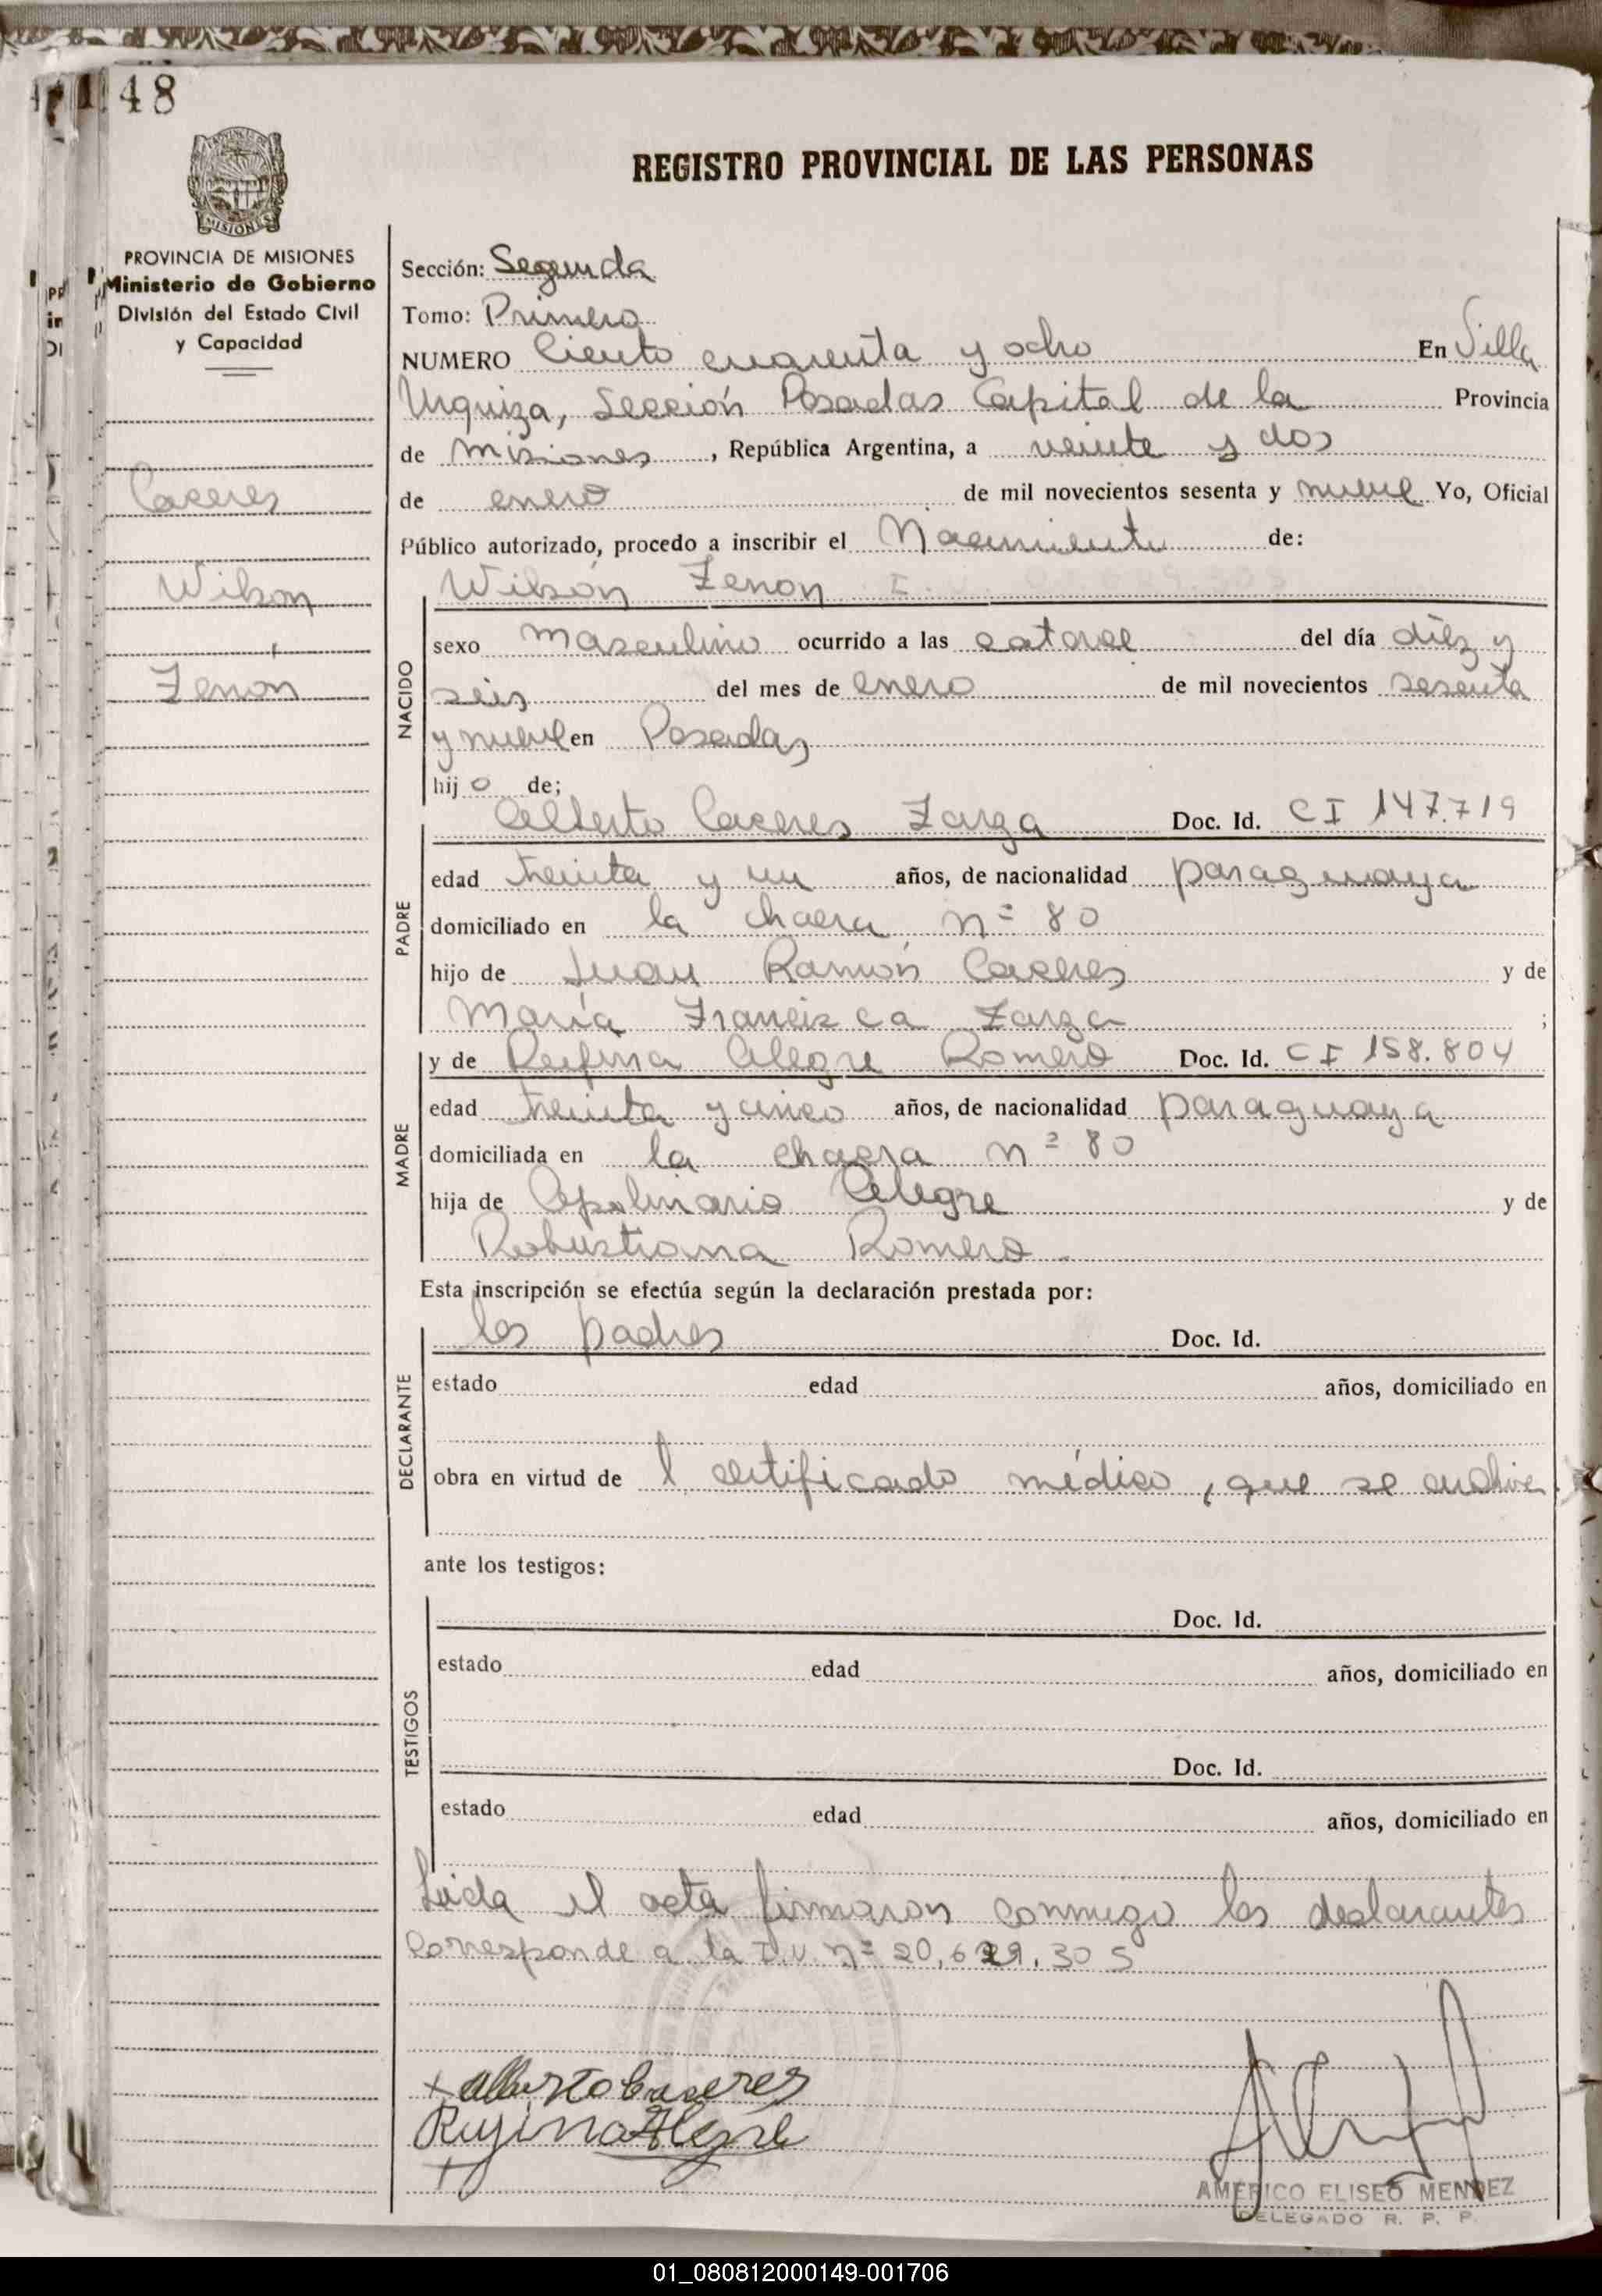 148
REGISTRO PROVINCIAL DE LAS PERSONAS
MISIONES
PROVINCIA DE MISIONES
Ministerio de Gobierno
División del Estado Civil
y Capacidad
Caceres
Wilson
Zenon
Sección: Segunda
Tomo: Primero
NUMERO Ciento cuarenta y ocho En Villa
Urquiza, Sección Posadas Capital de la Provincia
de Misiones, República Argentina, a veinte y dos
de enero de mil novecientos sesenta y nueve Yo, Oficial
Público autorizado, procedo a inscribir el Nacimiento de:
Wilson Zenon
NACIDO
sexo masculino ocurrido a las catorce del día diez y
seis del mes de enero de mil novecientos sesenta
y nueve en Posadas
hijo de;
PADRE
Alberto Caceres Zarza Doc. Id. CI 147.719
edad treinta y un años, de nacionalidad paraguaya
domiciliado en la chacra n= 80
hijo de Juan Ramón Caceres y de
María Francisca Zarza ;
MADRE
y de Rufina Alegre Romero Doc. Id. CI 158.804
edad treinta y cinco años, de nacionalidad paraguaya
domiciliada en la chacra n= 80
hija de Apolinario Alegre y de
Robustiana Romero.
Esta inscripción se efectúa según la declaración prestada por:
DECLARANTE
los padres Doc. Id.
estado edad años, domiciliado en
obra en virtud de l certificado médico, que se archiva
ante los testigos:
TESTIGOS
Doc. Id.
estado edad años, domiciliado en
Doc. Id.
estado edad años, domiciliado en
Leida el acta firmaron conmigo los declarantes
Corresponde a la I.U. n= 20,629,305
+ Alberto Caceres
Rufina Alegre
+
AMERICO ELISEO MENDEZ
DELEGADO R. P. P.
01_080812000149-001706